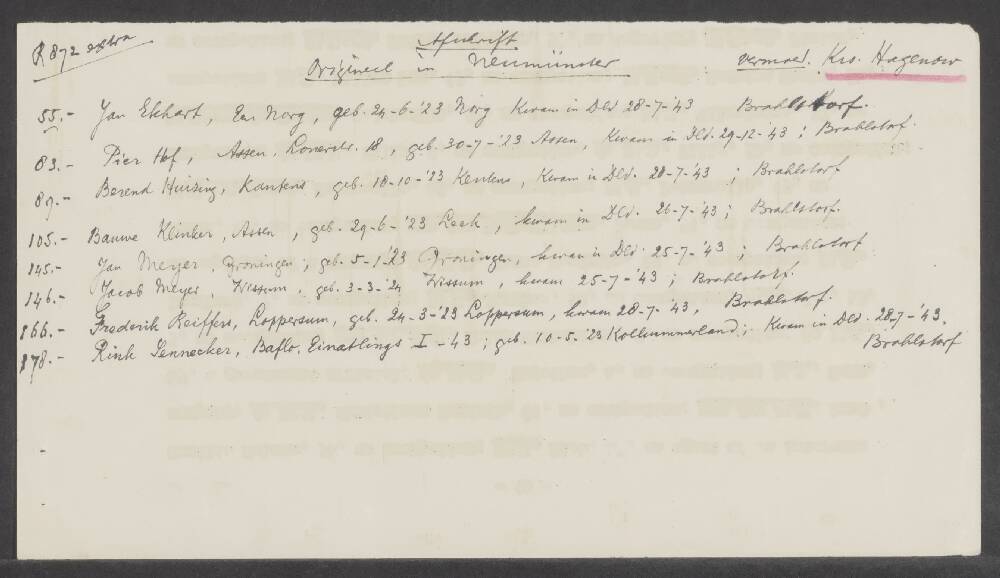 R 872 extra
Afschrift
Origineel in Neumünster
vermoed. Krs. Hagenow
55.- Jan Ekhart, Een Norg, geb. 24-6-'23 Norg Kwam in Dld 28-7-'43 Brahlstorf.
83.- Pier Hof, Assen, 18, geb. 30-7-'23 Assen, Kwam in Dld. 29-12-'43; Brahlstorf.
89.- Berend Huizing, Kantens, geb. 18-10-'23 Kentens, Kwam in Dld. 28-7-'43; Brahlstorf
105.- Bauwe Klinker, Assen, geb. 29-6-'23 Leek, kwam in Dld. 26-7-'43; Brahlstorf.
145.- Jan Meyer, Groningen; geb. 5-1-'23 Groningen, kwam in Dld. 25-7-'43; Brahlstorf
146.- Jacob Meyer, Wissum, geb. 3-3-'24 Wissum, kwam 25-7-'43; Brahlstorf
166.- Frederik Reiffers, Loppersum, geb. 24-3-'23 Loppersum, kwam 28-7-'43, Brahlstorf.
178.- Rink Lennecker, Baflo, I-43; geb. 10-5-'23 Kollummerland; Kwam in Dld. 28-7-'43.
Brahlstorf